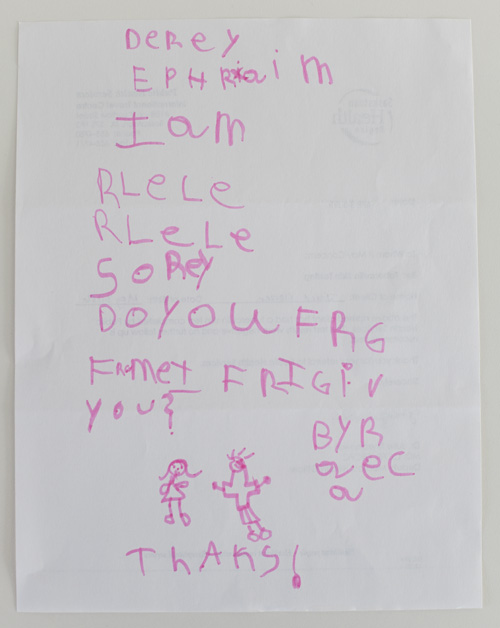 DEREY
EPHRaim
I am
RLeLe
RLeLe
SOREY
DOYOU FRG
FROMET FRIGiv
you?
BYR
aec
a
ThAKS!